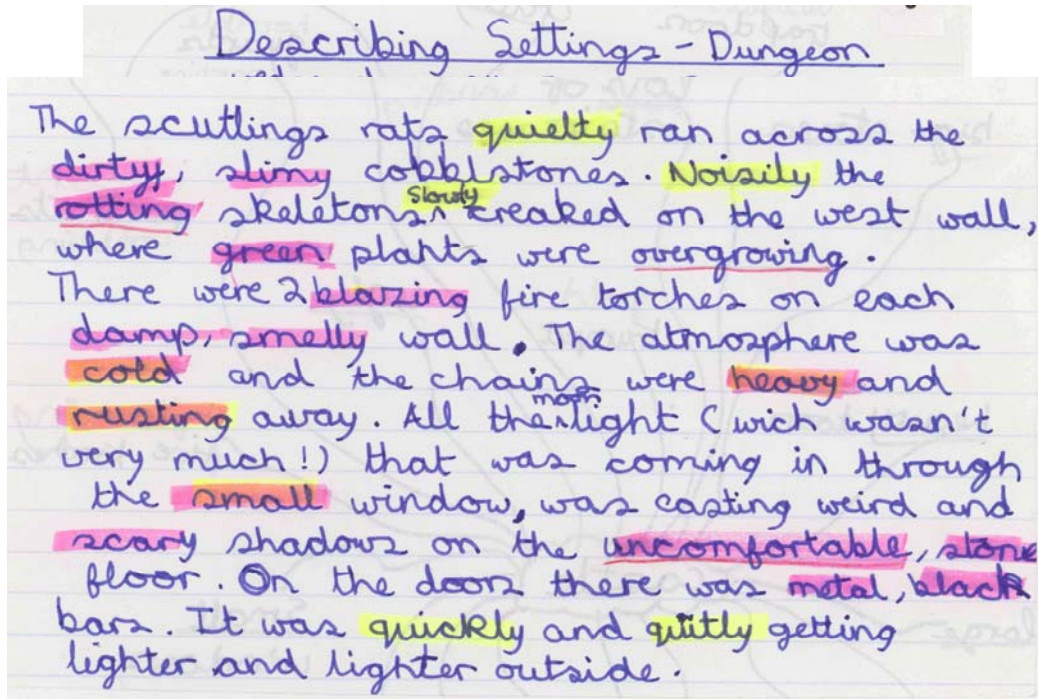 Describing Settings - Dungeon
The scutlings rats quielty ran across the
dirty, slimy cobblstones. Noisily the
rotting skeletons slowly creaked on the west wall,
where green plants were overgrowing.
There were 2 blazing fire torches on each
damp, smelly wall. The atmosphere was
cold and the chains were heavy and
rusting away. All the moon light (wich wasn't
very much!) that was coming in through
the small window, was casting weird and
scary shadows on the uncomfortable, stone
floor. On the doors there was metal, black
bars. It was quickly and quitly getting
lighter and lighter outside.